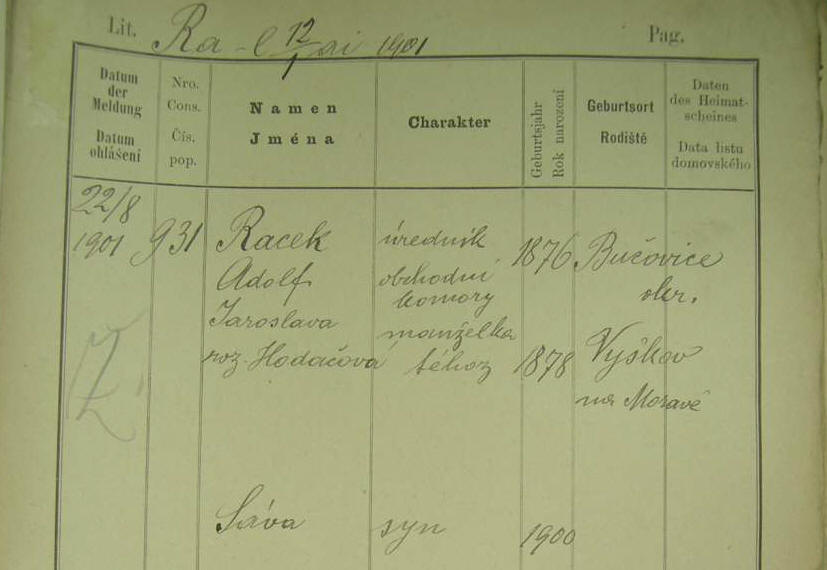 Lit. Ra - 12/1 1901 Pag.
Datum der Meldung
Datum ohlášení
Nro. Cons.
Čís. pop.
Namen
Jména
Charakter
Geburtsjahr
Rok narození
Geburtsort
Rodiště
Daten des Heimat-scheines
Data listu domovského
22/8
1901 931 Racek úředník 1876 Bučovice
Adolf obchodní okr.
komory
Jaroslava manželka
roz. Hodačová téhož 1878 Vyškov
na Moravě
Sáva syn 1900